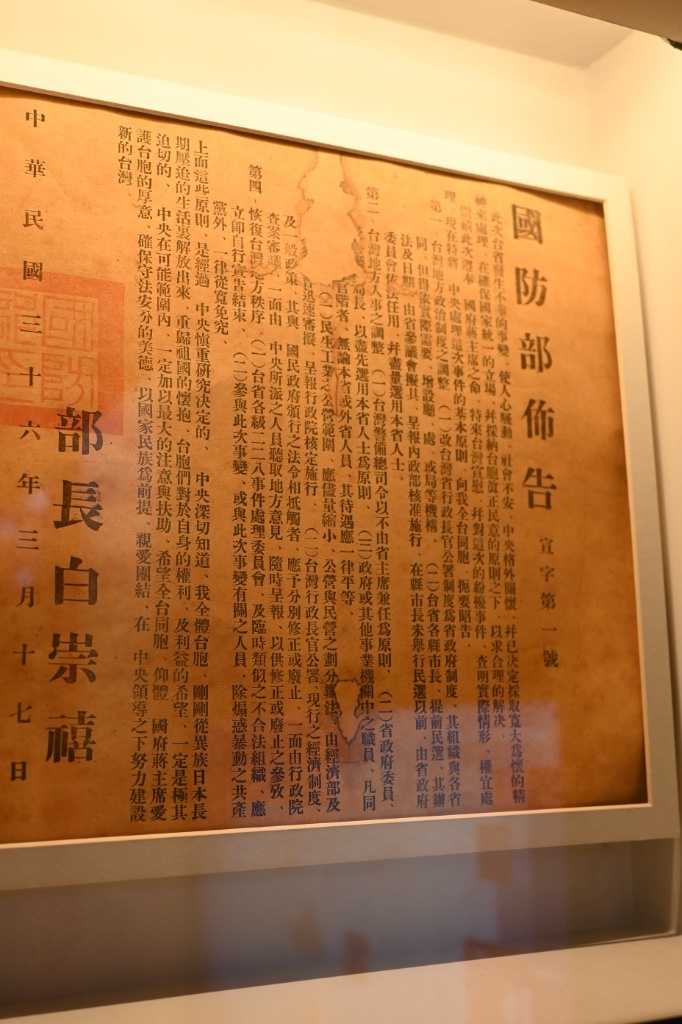 國防部佈告 宣字第一號
此次台省發生不幸的事變、使人心騷動、社會不安、中央格外關懷、并已决定採取寬大為懷的精
神來處理、在確保國家統一的立場、并採納台胞真正民意的原則之下、以求合理的解决、
禧此次遵奉 國府蔣主席之命、特來台灣宣慰、并對這次的紛擾事件、查明實際情形、權宜處
理、現在特將 中央處理這次事件的基本原則、向我全台同胞、扼要昭告、
第一、台灣地方政治制度之調整、(一)改台灣省行政長官公署制度為省政府制度、其組織與各省
同、但得依實際需要、增設廳、處、或局等機構、(二)台省各縣市長、提前民選、其辦
法及日期、由省參議會擬具、呈報內政部核准施行、在縣市長未舉行民選以前、由省政府
委員會依法任用、并儘量選用本省人士、
第二、台灣地方人事之調整、(一)台灣警備總司令以不由省主席兼任為原則、(二)省政府委員、
局長、以盡先選用本省人士為原則、(三)政府或其他事業機關中之職員、凡同
官階者、無論本省或外省人員、其待遇應一律平等、
(一)民生工業之公營範圍、應儘量縮小、公營與民營之劃分辦法、由經濟部及
迅速審擬、呈報行政院核定施行、(二)台灣行政長官公署、現行之經濟制度、
及一般政策、其與 國民政府頒行之法令相抵觸者、應予分别修正或廢止、一面由行政院
查案審議、一面由 中央所派之人員聽取地方意見、隨時呈報、以供修正或廢止之參攷、
第四、恢復台灣地方秩序、(一)台省各級二二八事件處理委員會、及臨時類似之不合法組織、應
立即自行宣告結束、(二)參與此次事變、或與此次事變有關之人員、除煽惑暴動之共產
黨外、一律從寬免究、
上面這些原則、是經過 中央慎重研究决定的、 中央深切知道、我全體台胞、剛剛從異族日本長
期壓迫的生活裏解放出來、重歸祖國的懷抱、台胞們對於自身的權利、及利益的希望、一定是極其
迫切的、 中央在可能範圍內、一定加以最大的注意與扶助、希望全台同胞、仰體 國府蔣主席愛
護台胞的厚意、確保守法安分的美德、以國家民族為前提、親愛團結、在 中央領導之下努力建設
新的台灣、
部長白崇禧
中華民國三十六年三月十七日